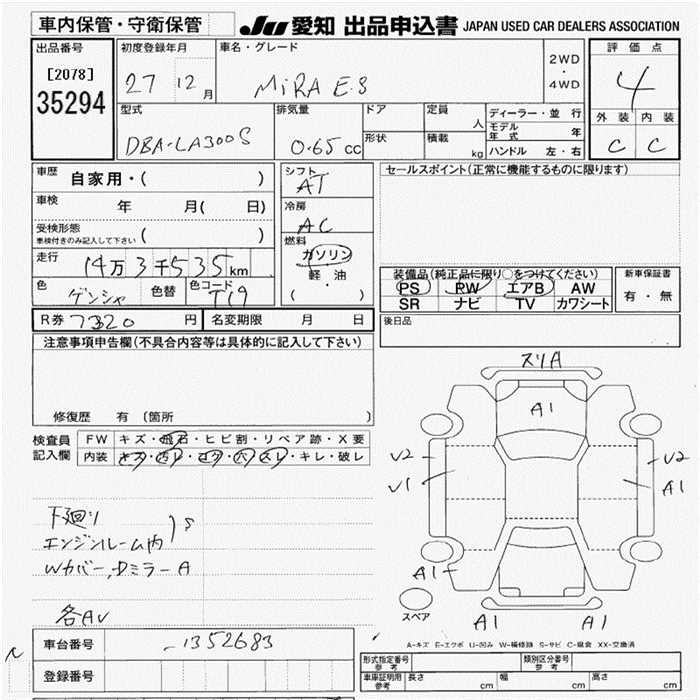 車内保管・守衛保管
JU 愛知 出品申込書 JAPAN USED CAR DEALERS ASSOCIATION
出品番号
[2078]
35294
初度登録年月
27 12月
車名・グレード
MiRA E.S
2WD
・
4WD
評価点
4
外装 内装
C C
型式
DBA-LA300S
排気量
0.65 cc
ドア
形状
定員
人
積載
kg
ディーラー・並行
モデル年式 年
ハンドル 左・右
車歴
自家用・( )
車検
年 月( 日)
受検形態
車検付きのみ記入して下さい ( )
走行
14万3千535km
色
ゲンシャ
色替
色コード
T19
シフト
AT
冷房
AC
燃料
ガソリン
軽油
( ・ )
セールスポイント(正常に機能するものに限ります)
装備品(純正品に限り○をつけてください)
PS PW エアB AW
SR ナビ TV カワシート
新車保証書
有・無
R券 7320 円
名変期限 月 日
後日品
注意事項申告欄(不具合内容等は具体的に記入して下さい)
修復歴 有 (箇所 )
検査員
記入欄
FW キズ・飛石・ヒビ割・リペア跡・X要
内装 キズ・汚レ・コゲ・穴・スレ・キレ・破レ
下廻り
エンジンルーム内 } S
Wカバー、Dミラー A
各AU
スリA
A1
U2
U1
U2
A1
A1
スペア
A1 A1
A-キズ E-エクボ U-凹み W-補修跡 S-サビ C-腐食 XX-交換済
車台番号
-1352683
登録番号
形式指定番号 参考
類別区分番号 参考
車庫証明用 参考
長さ cm
幅 cm
高さ cm